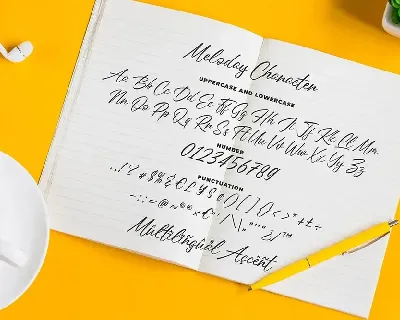 Meloday Character
UPPERCASE AND LOWERCASE
Aa Bb Cc Dd Ee Ff Gg Hh Ii Jj Kk Ll Mm
Nn Oo Pp Qq Rr Ss Tt Uu Vv Ww Xx Yy Zz
NUMBER
0123456789
PUNCTUATION
Multilingual Accent